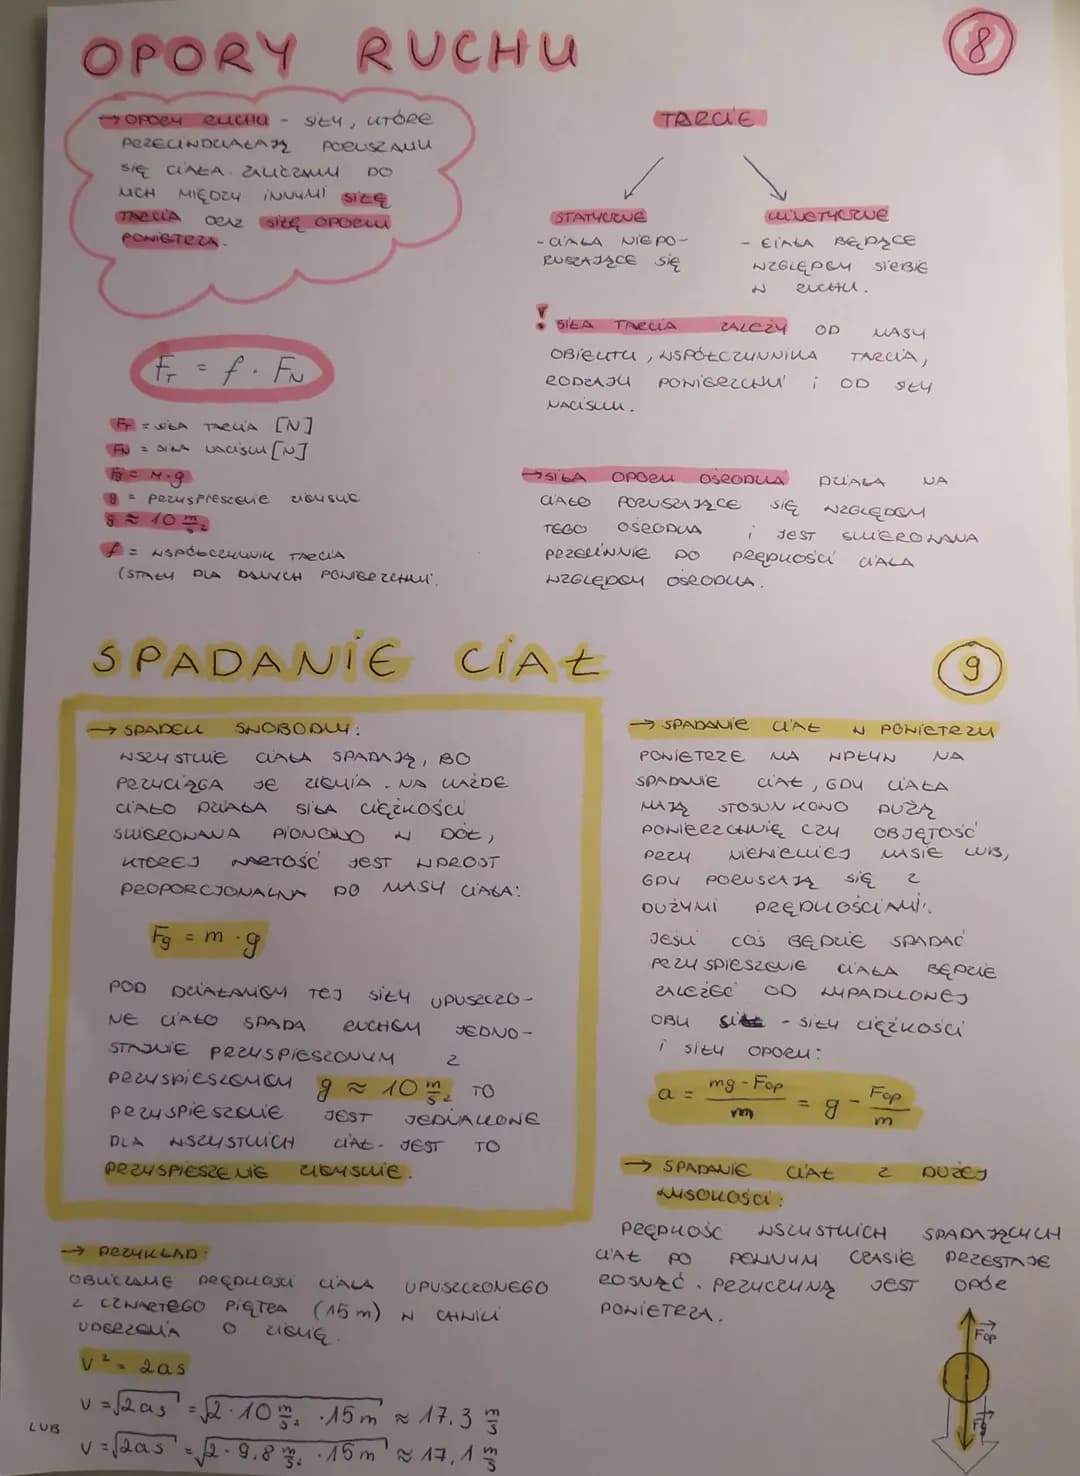 OPORY RUCHU
8
→ OPORY RUCHU - SIŁY, KTÓRE
PRZECIWDZIAŁAJĄ PORUSZANIU
SIĘ CIAŁA. ZALICZAMY DO
NICH MIĘDZY INNYMI SIŁĘ
TARCIA ORAZ SIŁĘ OPORU
POWIETRZA.
TARCIE
STATYCZNE
- CIAŁA NIEPO-
RUSZAJĄCE SIĘ
KINETYCZNE
- CIAŁA BĘDĄCE
WZGLĘDEM SIEBIE
W RUCHU.
! SIŁA TARCIA ZALEŻY OD MASY
OBIEKTU, WSPÓŁCZYNNIKA TARCIA,
RODZAJU POWIERZCHNI I OD SIŁY
NACISKU.
F_T = f · F_N
F_T = SIŁA TARCIA [N]
F_N = SIŁA NACISKU [N]
F_g = M·g
g = PRZYSPIESZENIE ZIEMSKIE
g ≈ 10 m/s²
f = WSPÓŁCZYNNIK TARCIA
(STAŁY DLA DANYCH POWIERZCHNI.
→ SIŁA OPORU OŚRODKA DZIAŁA NA
CIAŁO PORUSZAJĄCE SIĘ WZGLĘDEM
TEGO OŚRODKA I JEST SKIEROWANA
PRZECIWNIE DO PRĘDKOŚCI CIAŁA
WZGLĘDEM OŚRODKA.
SPADANIE CIAŁ
9
→ SPADEK SWOBODNY:
WSZYSTKIE CIAŁA SPADAJĄ, BO
PRZYCIĄGA JE ZIEMIA. NA KAŻDE
CIAŁO DZIAŁA SIŁA CIĘŻKOŚCI
SKIEROWANA PIONOWO W DÓŁ,
KTÓREJ WARTOŚĆ JEST WPROST
PROPORCJONALNA DO MASY CIAŁA:
F_g = m · g
POD DZIAŁANIEM TEJ SIŁY UPUSZCZO-
NE CIAŁO SPADA RUCHEM JEDNO-
STAJNIE PRZYSPIESZONYM Z
PRZYSPIESZENIEM g ≈ 10 m/s² TO
PRZYSPIESZENIE JEST JEDNAKOWE
DLA WSZYSTKICH CIAŁ. JEST TO
PRZYSPIESZENIE ZIEMSKIE.
→ PRZYKŁAD:
OBLICZANIE PRĘDKOŚCI CIAŁA UPUSZCZONEGO
Z CZWARTEGO PIĘTRA (15 m) W CHWILI
UDERZENIA O ZIEMIĘ.
V² = 2as
V = √2as = √2·10 m/s² · 15 m ≈ 17,3 m/s
LUB
V = √2as = √2·9,8 m/s² · 15 m ≈ 17,1 m/s
→ SPADANIE CIAŁ W POWIETRZU
POWIETRZE MA WPŁYW NA
SPADANIE CIAŁ, GDY CIAŁA
MAJĄ STOSUNKOWO DUŻĄ
POWIERZCHNIĘ CZY OBJĘTOŚĆ
PRZY NIEWIELKIEJ MASIE LUB,
GDY PORUSZAJĄ SIĘ Z
DUŻYMI PRĘDKOŚCIAMI.
JEŚLI COŚ BĘDZIE SPADAĆ
PRZYSPIESZENIE CIAŁA BĘDZIE
ZALEŻEĆ OD WYPADKOWEJ
OBU - SIŁY CIĘŻKOŚCI
I SIŁY OPORU:
a = mg - Fop / m = g - Fop / m
→ SPADANIE CIAŁ Z DUŻEJ
WYSOKOŚCI:
PRĘDKOŚĆ WSZYSTKICH SPADAJĄCYCH
CIAŁ PO PEWNYM CZASIE PRZESTAJE
ROSNĄĆ. PRZYCZYNĄ JEST OPÓR
POWIETRZA.
Fop
Fg